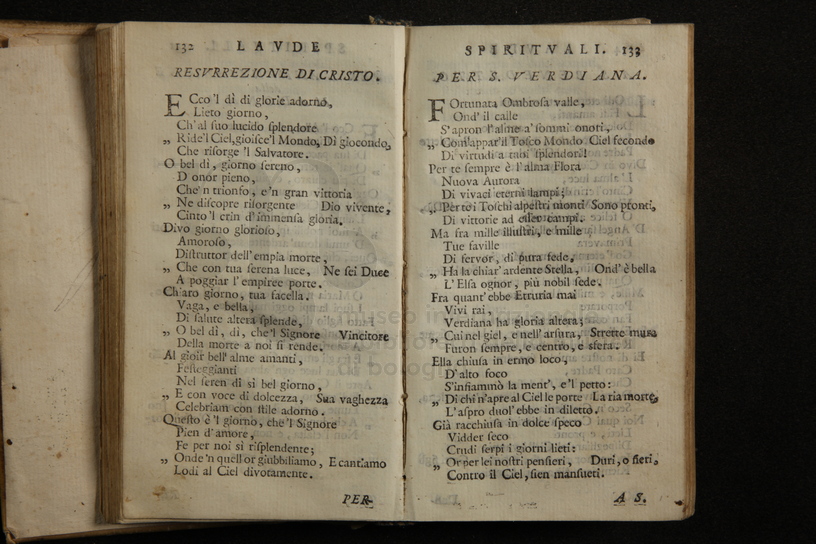 132 LAVDE
RESVRREZIONE DI CRISTO.
ECco 'l dì di glorie adorno,
Lieto giorno,
Ch'al suo lucido splendore
„ Ride'l Ciel, gioisce'l Mondo, Di giocondo,
Che risorge 'l Salvatore.
O bel dì, giorno sereno,
D onor pieno,
Che 'n trionfo, e 'n gran vittoria
„ Ne discopre risorgente Dio vivente,
Cinto 'l crin d'immensa gloria.
Divo giorno glorioso,
Amoroso,
Distruttor dell'empia morte,
„ Che con tua serena luce, Ne sei Duce
A poggiar l'empiree porte.
Chiaro giorno, tua facella.
Vaga, e bella,
Di salute altera splende,
„ O bel dì, dì, che 'l Signore Vincitore
Della morte a noi si rende.
Al gioir bell'alme amanti,
Festeggianti
Nel seren dì sì bel giorno,
„ E con voce di dolcezza, Sua vaghezza
Celebriam con stile adorno.
Questo è 'l giorno, che 'l Signore
Pien d'amore,
Fe per noi sì risplendente;
„ Onde 'n quell or giubbiliamo, E cantiamo
Lodi al Ciel divotamente.
PER
SPIRITVALI. 133
PER S. VERDIANA.
FOrtunata Ombrosa valle,
Ond' il calle
S'apron l'alme a'sommi onori,
„ Com'appar'il Tosco Mondo Ciel secondo
Di virtudi a tanti splendori!
Per te sempre è l'alma Flora
Nuova Aurora
Di vivaci eterni lampi;
„ Per te i Toschi alpestri monti Sono pronti,
Di vittorie ad esser campi.
Ma fra mille illustri, e mille
Tue faville
Di fervor, di pura fede,
„ Ha la chiar'ardente Stella, Ond'è bella
L'Elsa ognor, più nobil sede.
Fra quant'ebbe Etruria mai
Vivi rai,
Verdiana ha gloria altera;
„ Cui nel giel, e nell'arsura, Strette mura
Furon sempre, e centro, e sfera.
Ella chiusa in ermo loco,
D'alto foco
S'infiammò la ment', e 'l petto:
„ Di chi n'apre al Ciel le porte La ria morte,
L'aspro duol'ebbe in diletto.
Già racchiusa in dolce speco
Vidder seco
Crudi serpi i giorni lieti:
„ Or per lei nostri pensieri, Duri, o fieri,
Contro il Ciel, sien mansueti.
A S.